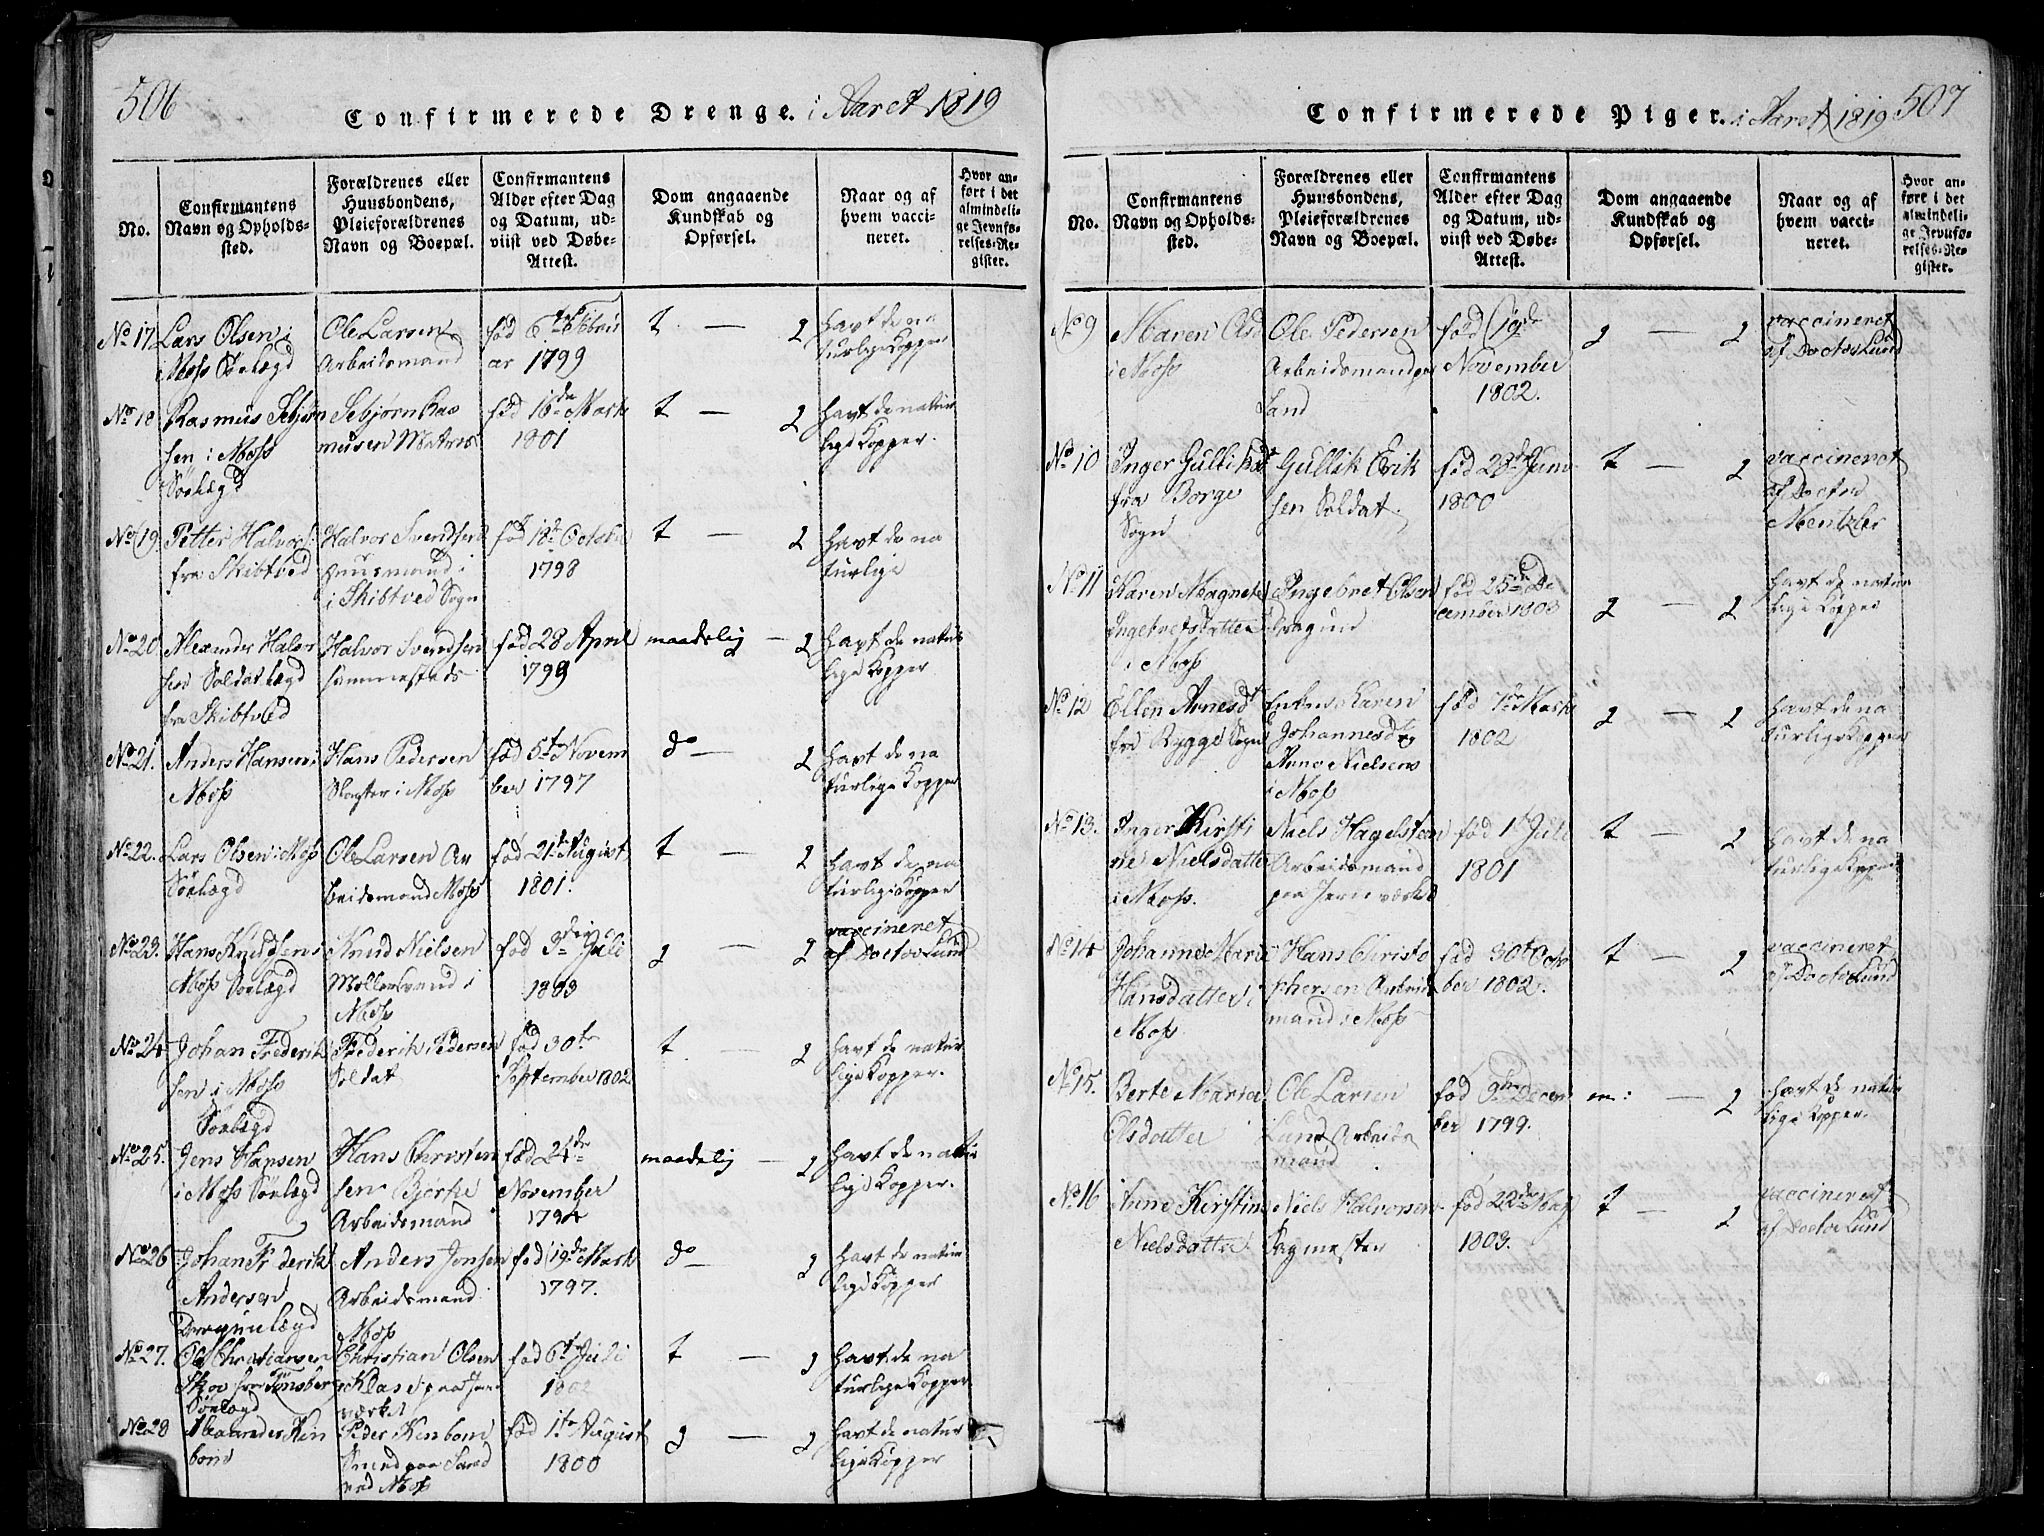 506
Confirmerede Drenge. i Aaret 1819
No.
Confirmantens Navn og Opholdssted.
Forældrenes eller Huusbondens, Pleieforældrenes Navn og Boepæl.
Confirmantens Alder efter Dag og Datum, udviist ved Døbe-Attest.
Dom angaaende Kundskab og Opførsel.
Naar og af hvem vaccineret.
Hvor anført i det almindelige Jevnførelses-Register.
No 17 Lars Olsen i
Moss Sølægd
Ole Larsen
Arbeidsmand
fød 6te Febru
ar 1799
t — g
havt de na
turlige Kopper
No 18 Rasmus Sebjørn
sen i Moss
Sølægd
Sebjørn Ras
musen Matros
fød 16de Marts
1801
t — g
havt de natur
lige Kopper.
No 19 Petter Halvors:
fra Skibtved
Halvor Svendsen
Huusmand i
i Skibtved Sogn
fød 18de Octobr
1798
t — g
havt de na
turlige
No 20. Alexander Halvor
sen Soldatlægd
fra Skibtved
Halvor Svendsen
fød 28 April
1799
maadelig — g
havt de natur
lige Kopper
No 21. Anders Hansen i
Moss
Hans Pedersen
Slagter i Moss
fød 5te Novem
ber 1797
do — g
havt de na
turlige Kopper
No 22. Lars Olsen i Moss
Sølægd
Ole Larsen Ar
beidsmand Moss
fød 21de August
1801.
t — g
havt de na
turlige Kopper
No 23. Hans Knudsen i
Moss Sølægd
Knud Nielsen
Møllersvend i
Moss
fød 3die Juli
1803
g — g
vaccineret
af Doctor Lund
No 24 Johan Frederik
sen i Moss
Sølægd
Frederik Pedersen
Soldat
fød 30te
September 1802
t — g
havt de natur
lige Kopper.
No 25. Jens Hansen
i Moss Sølægd
Hans Christen
sen Bjerke
Arbeidsmand
fød 24de
November
1794
maadelig — g
havt de natur
lige Kopper.
No 26 Johan Frederik
Andersen
Dragunlægd
Anders Jonsen
Arbeidsmand
Moss
fød 19de Marts
1797.
do — g
havt de natur
lige Kopper
No 27. Ole Christiansen
Skov fra Tønsberg
Sølægd
Christian Olsen
paa Jern
værket
fød 6te Juli
1802
t — g
havt de na
turlige Kopper
No 28 Alexander Ken
bom
Peder Kenbom
Smed paa Sand
ved Moss
fød 1ste August
1800
g — g
havt de natur
lige Kopper
Confirmerede Piger. i Aaret 1819
507
No.
Confirmantens Navn og Opholdssted.
Forældrenes eller Huusbondens, Pleieforældrenes Navn og Boepæl.
Confirmantens Alder efter Dag og Datum, udviist ved Døbe-Attest.
Dom angaaende Kundskab og Opførsel.
Naar og af hvem vaccineret.
Hvor anført i det almindelige Jevnførelses-Register.
No 9 Maren Olsd
i Moss
Ole Pedersen
Arbeidsmand paa
Land
fød 19de
November
1802.
g — g
vaccineret
af Doctor Lund
No 10 Inger Gulliksdt
fra Borge
Sogn
Gullik Erik
sen Soldat.
fød 28de Juni
1800
t — g
vaccineret
af Doctor
Mentzler
No 11 Karen Magnete
Ingebretsdatter
i Moss
Ingebret Olsen
Dragun
fød 25de De
cember 1803
g — g
havt de natur
lige Kopper
No 12 Ellen Arnesdt
fra Rygge Sogn
Enken Karen
Johannesd og
Arne Nielsens
i Moss
fød 7de Marts
1802
g — g
havt de na
turlige Kopper
No 13. Inger Kirsti
ne Nielsdatter
i Moss.
Niels Hagelsteen
Arbeidsmand
paa Jernværked
fød 1ste Juli
1801
t — g
havt de na
turlige Kopper
No 14 Johanne Marie
Hansdatter i
Moss
Hans Christo
phersen Arbeids
mand i Moss
fød 30te Octo
ber 1802.
t — g
vaccineret
af Doctor Lund
No 15. Berte Maria
Olsdatter
Ole Larsen
Lund Arbeids
mand
fød 9de Decem
ber 1799.
m: — g
havt de natur
lige Kopper.
No 16 Anne Kirstine
Nielsdatter
Niels Halvorsen
Sagmester
fød 22de May
1803.
t — g
vaccineret
af Doctor Lund